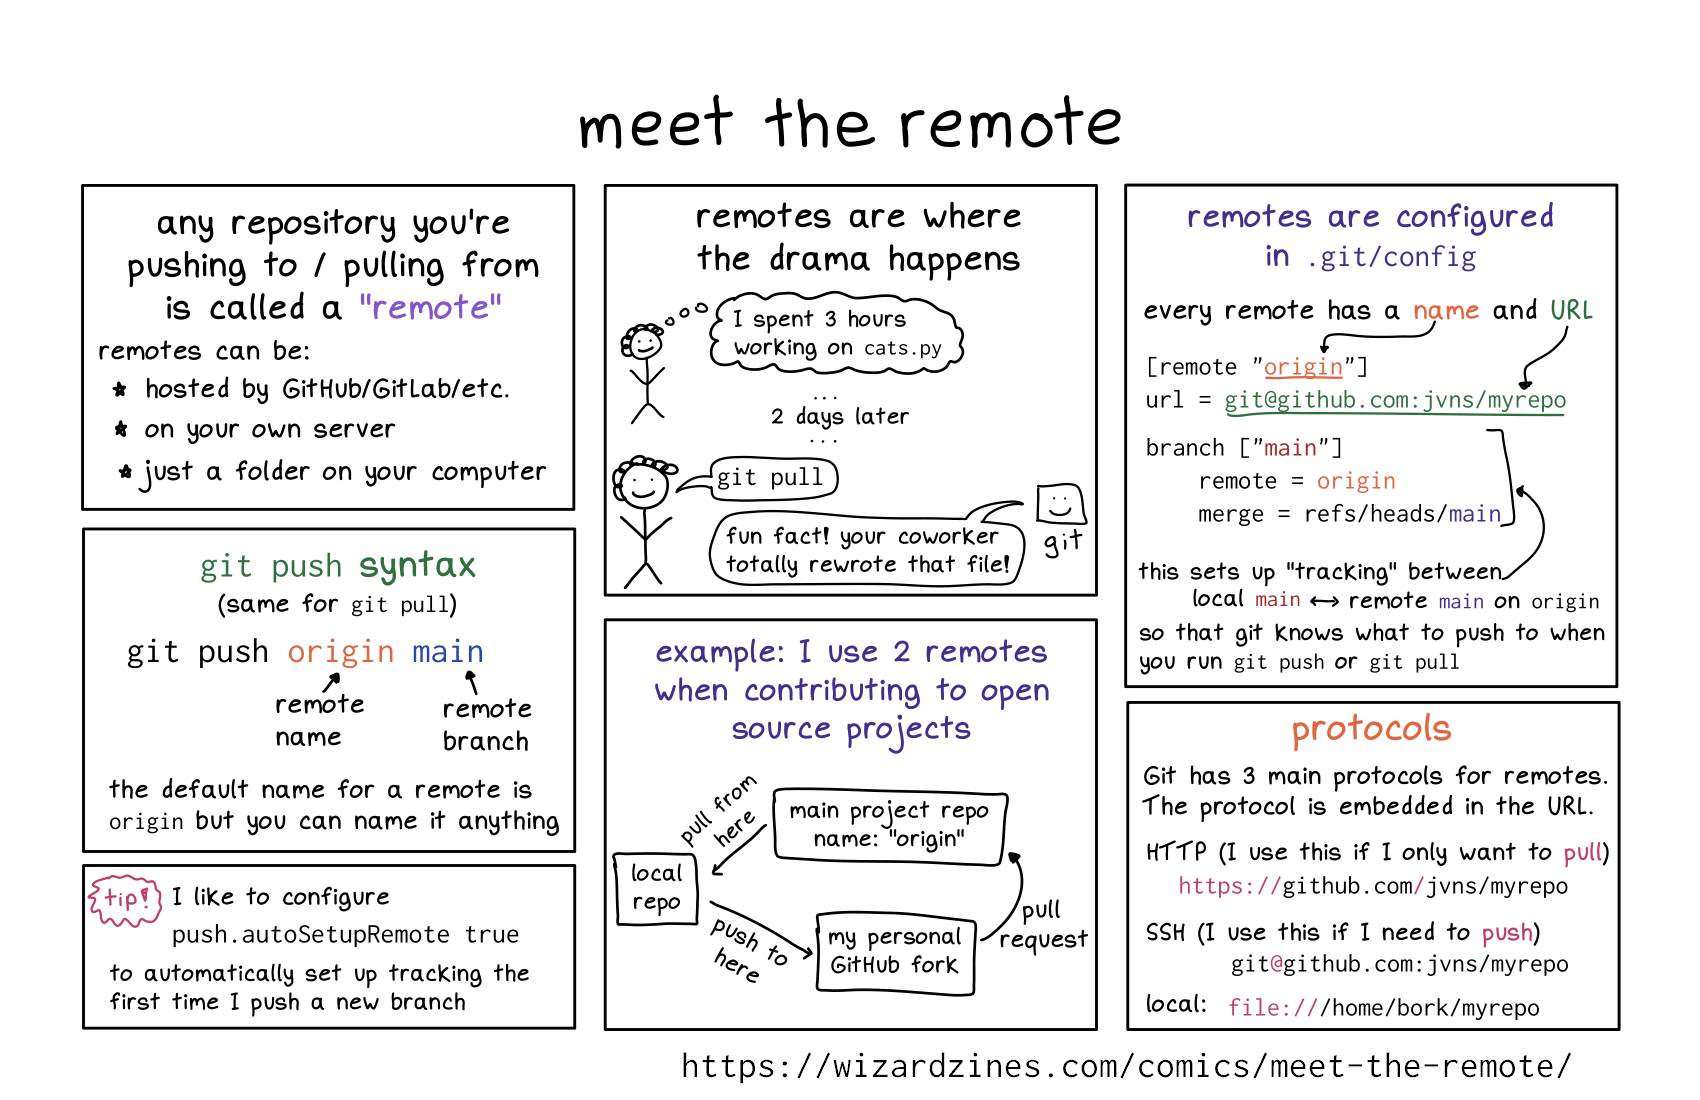 meet the remote
any repository you're
pushing to / pulling from
is called a "remote"
remotes can be:
hosted by GitHub/GitLab/etc.
on your own server
just a folder on your computer
git push syntax
(same for git pull)
git push origin main
remote
name
remote
branch
the default name for a remote is
origin but you can name it anything
tip!
I like to configure
push.autoSetupRemote true
to automatically set up tracking the
first time I push a new branch
remotes are where
the drama happens
I spent 3 hours
working on cats.py
...
2 days later
...
git pull
fun fact! your coworker
totally rewrote that file!
git
example: I use 2 remotes
when contributing to open
source projects
pull from
here
main project repo
name: "origin"
local
repo
push to
here
my personal
GitHub fork
pull
request
remotes are configured
in .git/config
every remote has a name and URL
[remote "origin"]
url = git@github.com:jvns/myrepo
branch ["main"]
remote = origin
merge = refs/heads/main
this sets up "tracking" between
local main ↔ remote main on origin
so that git knows what to push to when
you run git push or git pull
protocols
Git has 3 main protocols for remotes.
The protocol is embedded in the URL.
HTTP (I use this if I only want to pull)
https://github.com/jvns/myrepo
SSH (I use this if I need to push)
git@github.com:jvns/myrepo
local: file:///home/bork/myrepo
https://wizardzines.com/comics/meet-the-remote/